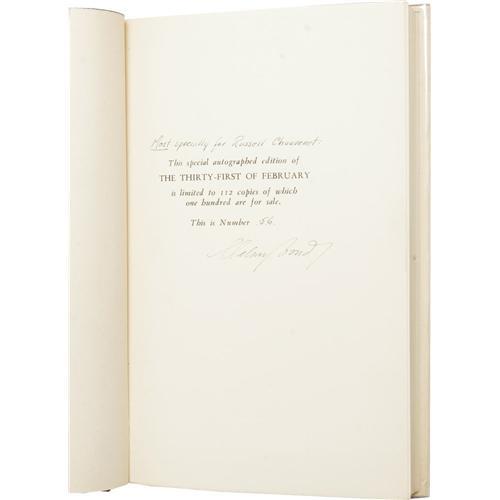 Most specially for Russell Chauvenet.
This special autographed edition of
THE THIRTY-FIRST OF FEBRUARY
is limited to 112 copies of which
one hundred are for sale.
This is Number 56.
Nelson Bond